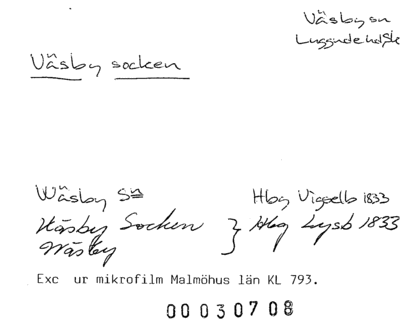 Väsby sn
Luggude hd, Sk
Väsby socken
Wäsby Sn Hbg Viggellb 1833
Wäsby Socken } Hbg Lysb 1833
Wäsby
Exc ur mikrofilm Malmöhus län KL 793.
00030708